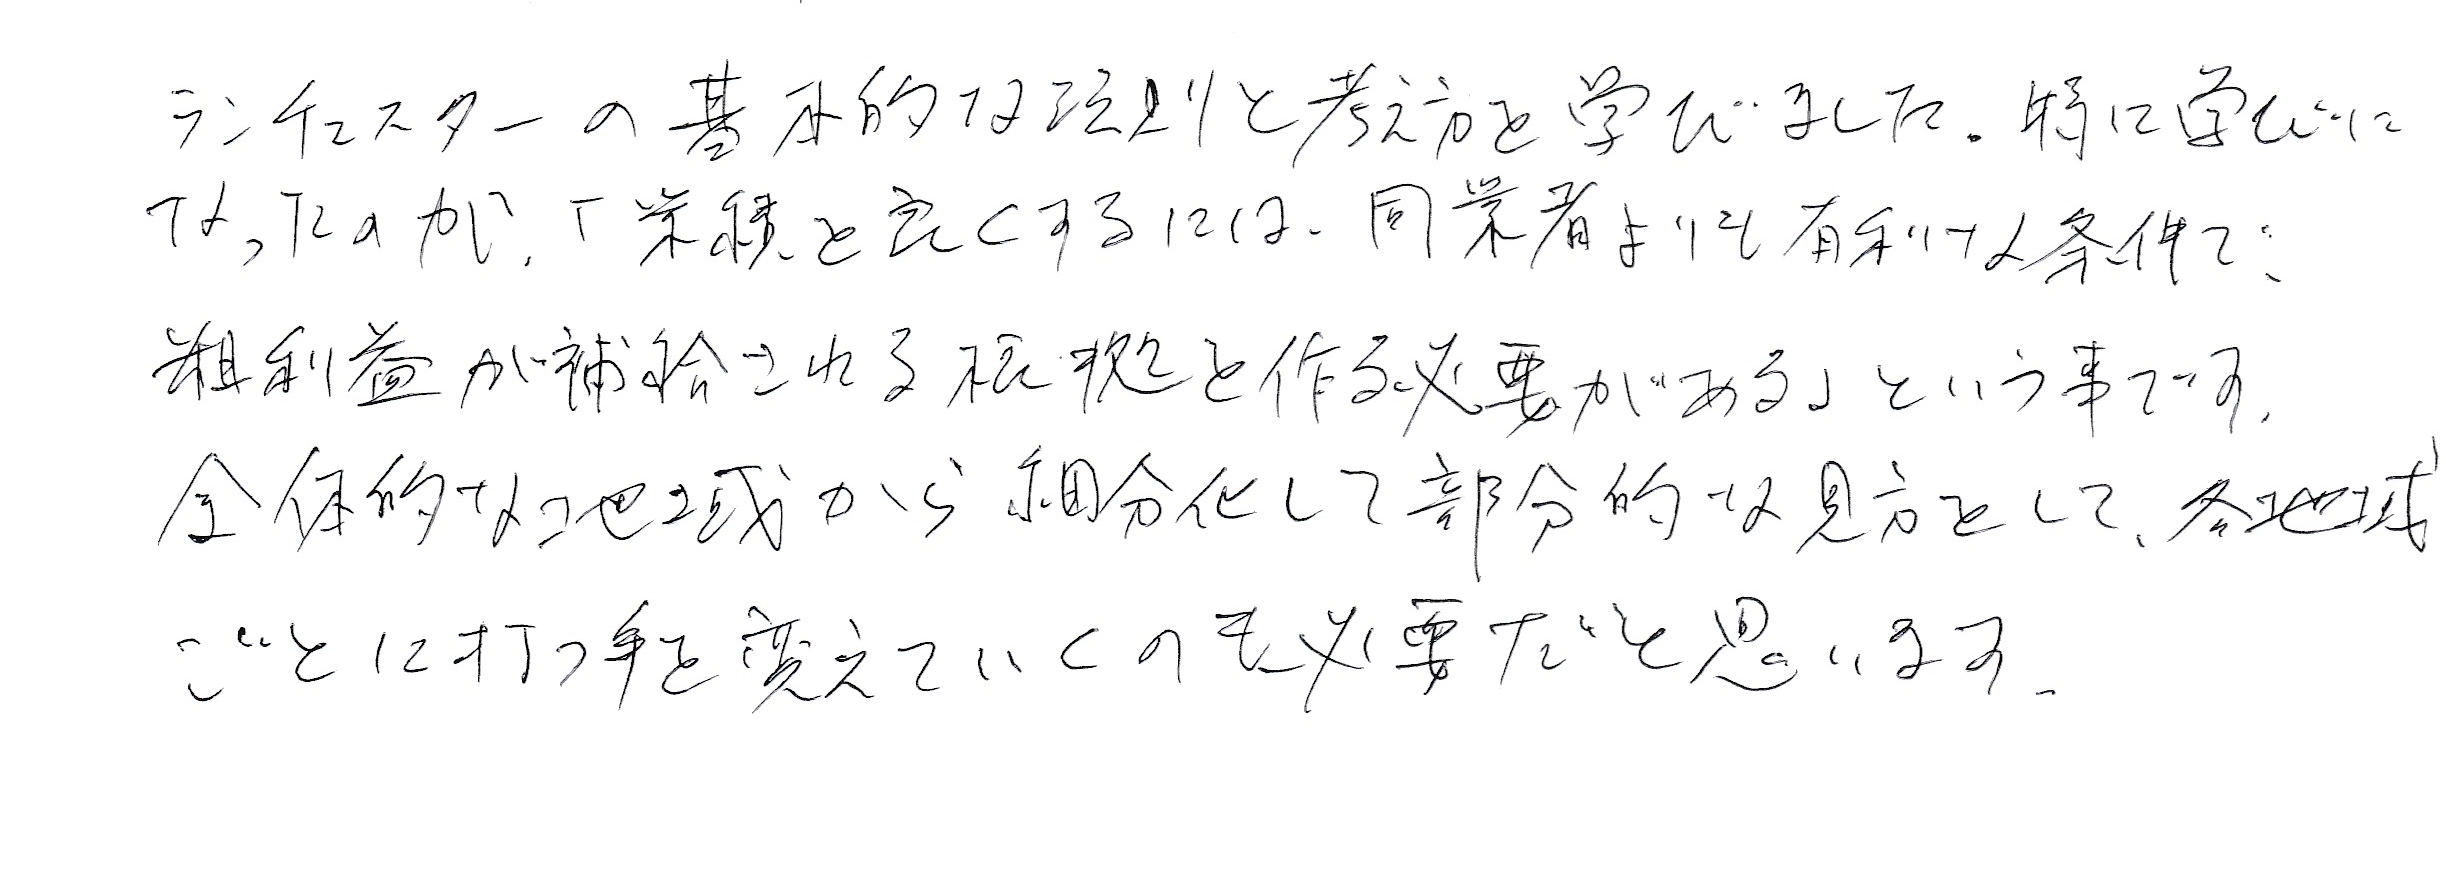 ランチェスターの基本的な法則と考え方を学びました。特に学びに
なったのが、「業績を良くするには、同業者よりも有利な条件で、
粗利益が補給される根拠を作る必要がある」という事です。
全体的な地域から細分化して部分的な見方をして、各地域
ごとに打つ手を変えていくのも必要だと思います。